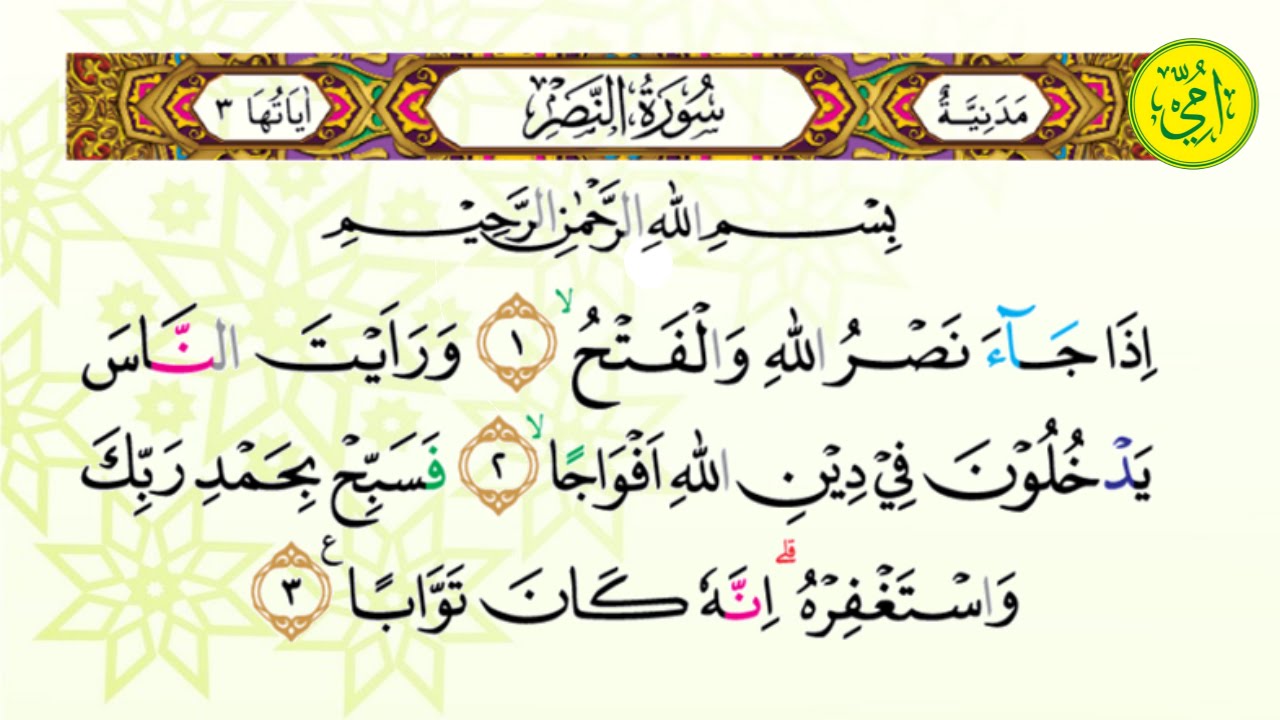 مَدَنِيَّةٌ سُوْرَةُ النَّصْرِ اٰيَاتُهَا ٣
اُمِّيّ
بِسْمِ اللهِ الرَّحْمٰنِ الرَّحِيْمِ
اِذَا جَاۤءَ نَصْرُ اللهِ وَالْفَتْحُ ۙ ١ وَرَاَيْتَ النَّاسَ
يَدْخُلُوْنَ فِيْ دِيْنِ اللهِ اَفْوَاجًا ۙ ٢ فَسَبِّحْ بِحَمْدِ رَبِّكَ
وَاسْتَغْفِرْهُ ۗ اِنَّهٗ كَانَ تَوَّابًا ع ٣